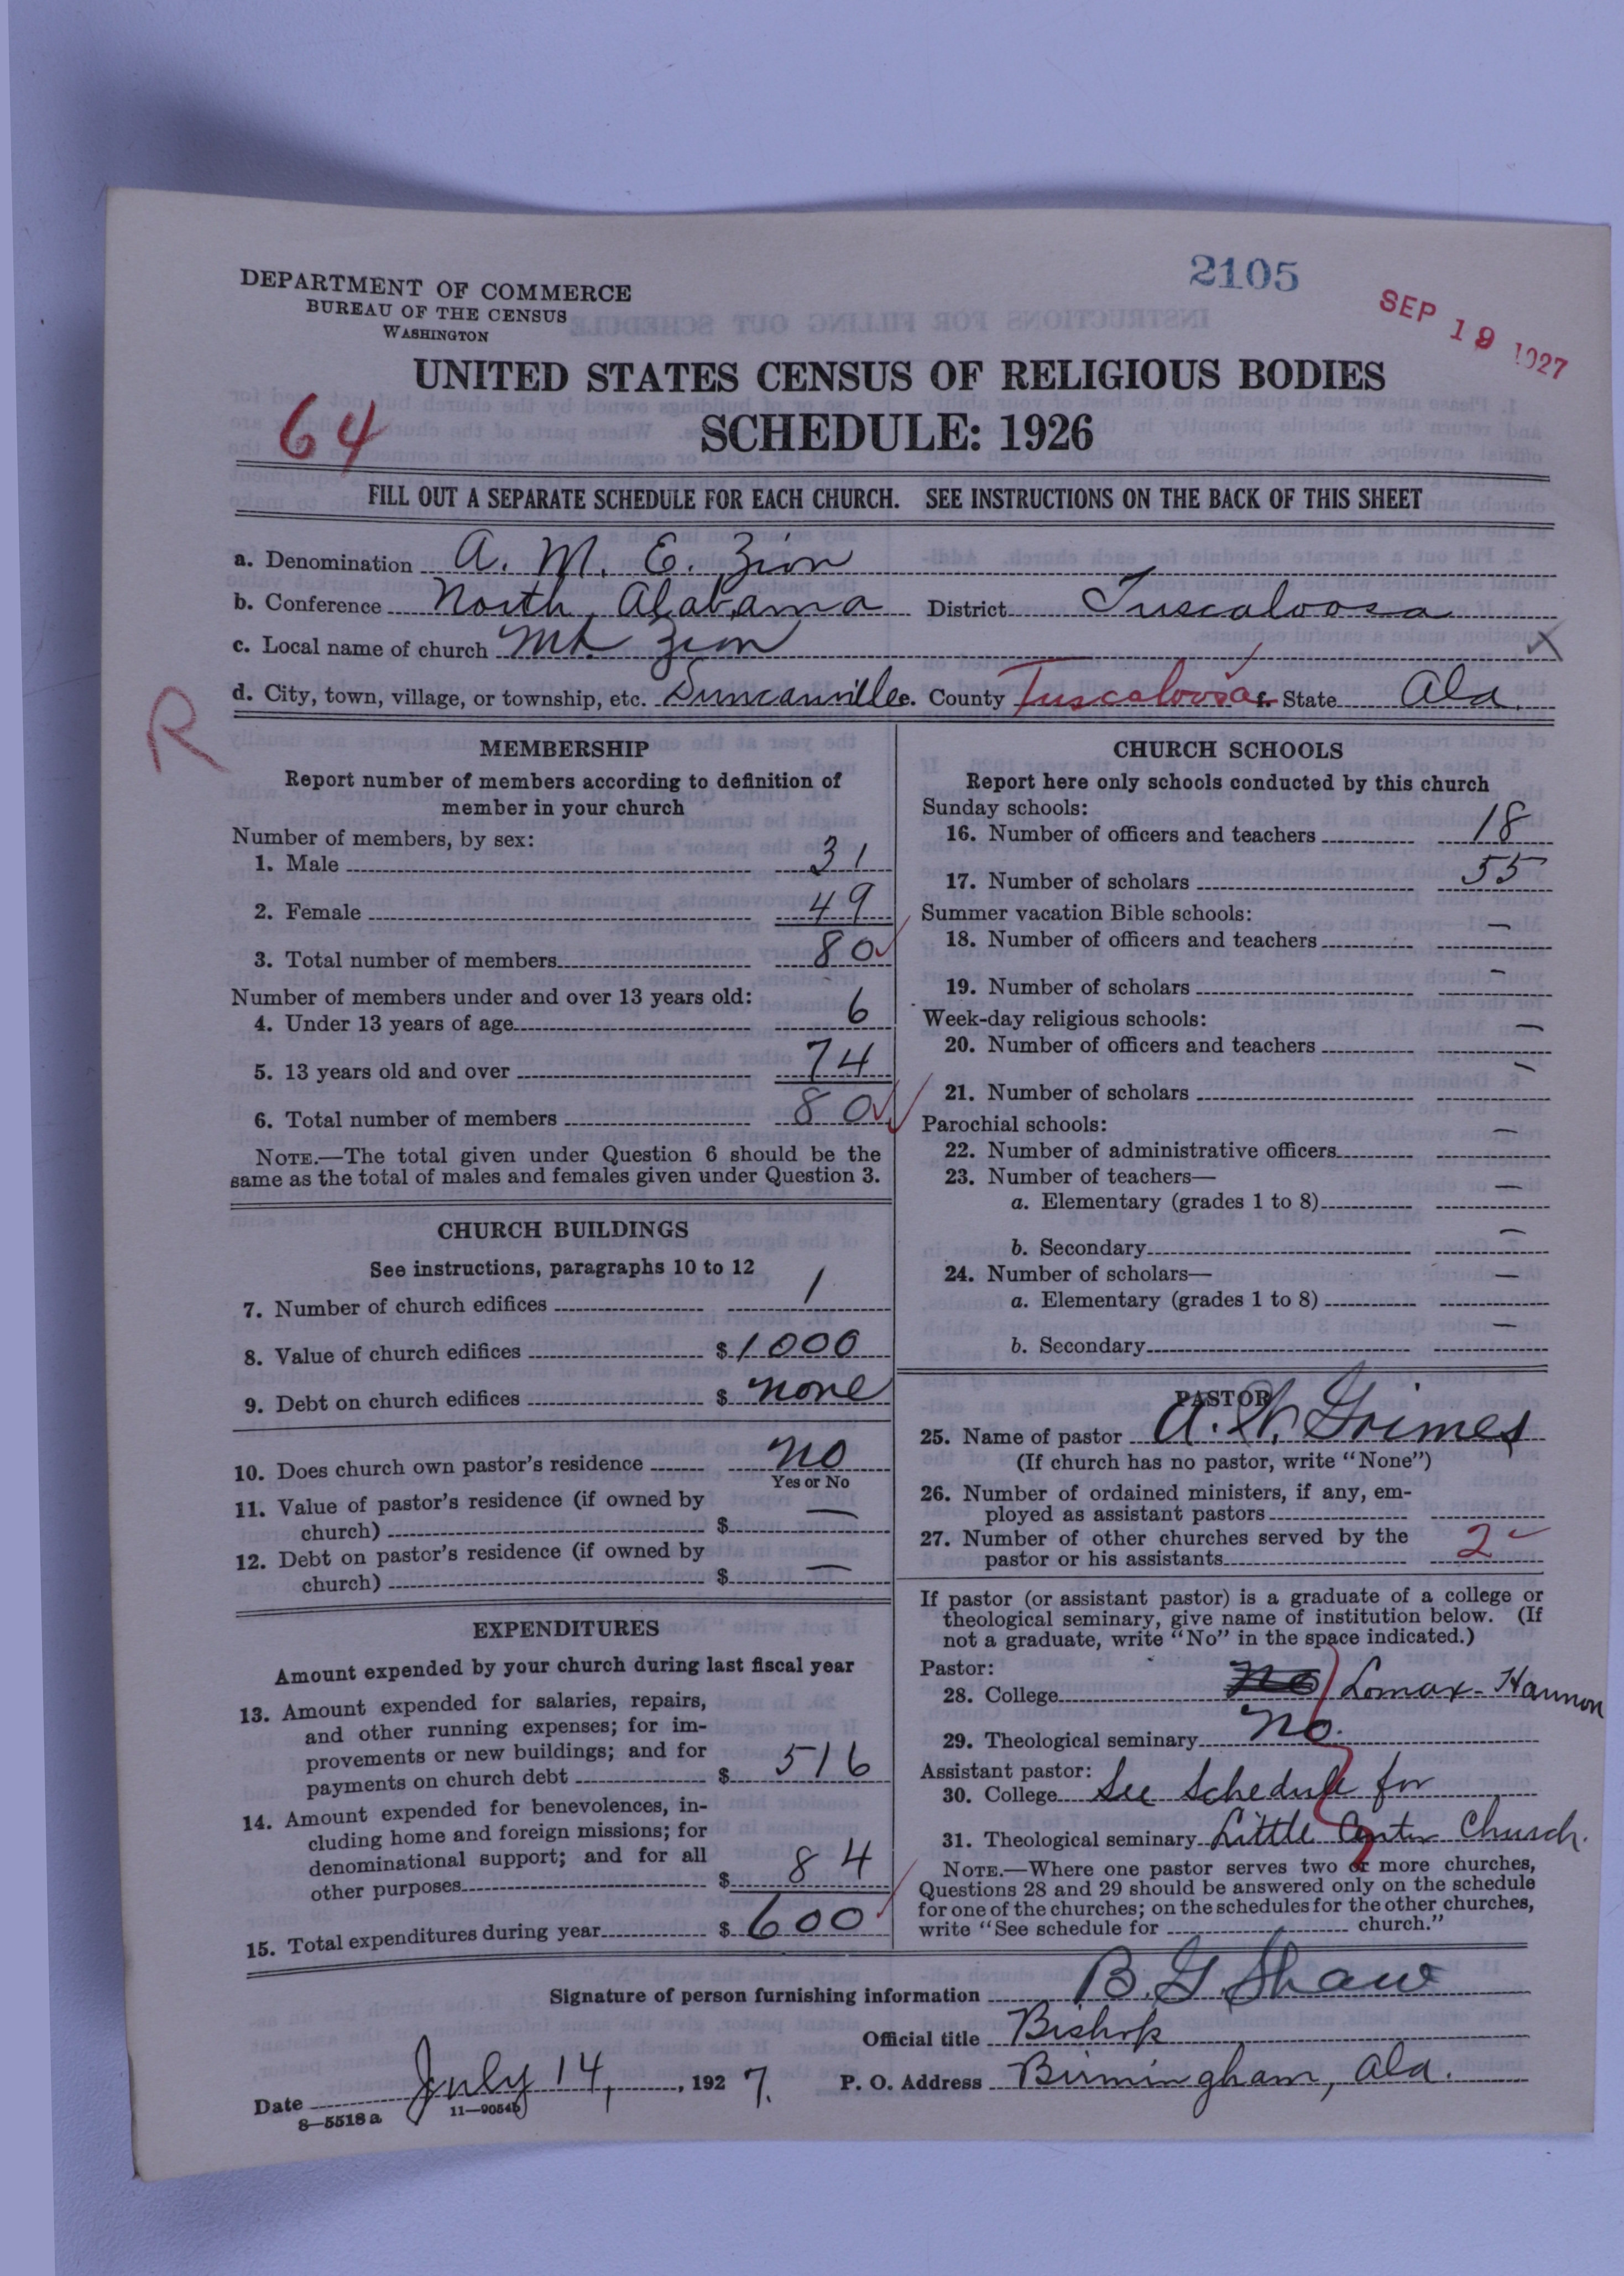 2105
SEP 19 1927
DEPARTMENT OF COMMERCE
BUREAU OF THE CENSUS
WASHINGTON
UNITED STATES CENSUS OF RELIGIOUS BODIES
64
SCHEDULE: 1926
FILL OUT A SEPARATE SCHEDULE FOR EACH CHURCH. SEE INSTRUCTIONS ON THE BACK OF THIS SHEET
a. Denomination A. M. E. Zion
b. Conference North Alabama District Tuscaloosa
c. Local name of church Mt. Zion
X
d. City, town, village, or township, etc. Duncanville e. County Tuscaloosa f. State Ala.
R
MEMBERSHIP
Report number of members according to definition of
member in your church
Number of members, by sex:
1. Male 31
2. Female 49
3. Total number of members 80
Number of members under and over 13 years old:
4. Under 13 years of age 6
5. 13 years old and over 74
6. Total number of members 80
NOTE.—The total given under Question 6 should be the
same as the total of males and females given under Question 3.
CHURCH BUILDINGS
See instructions, paragraphs 10 to 12
7. Number of church edifices 1
8. Value of church edifices $ 1000
9. Debt on church edifices $ none
10. Does church own pastor's residence no
Yes or No
11. Value of pastor's residence (if owned by
church) $ —
12. Debt on pastor's residence (if owned by
church) $ —
EXPENDITURES
Amount expended by your church during last fiscal year
13. Amount expended for salaries, repairs,
and other running expenses; for im-
provements or new buildings; and for
payments on church debt $ 516
14. Amount expended for benevolences, in-
cluding home and foreign missions; for
denominational support; and for all
other purposes $ 84
15. Total expenditures during year $ 600
CHURCH SCHOOLS
Report here only schools conducted by this church
Sunday schools:
16. Number of officers and teachers 18
17. Number of scholars 55
Summer vacation Bible schools:
18. Number of officers and teachers —
19. Number of scholars —
Week-day religious schools:
20. Number of officers and teachers —
21. Number of scholars —
Parochial schools:
22. Number of administrative officers —
23. Number of teachers—
a. Elementary (grades 1 to 8) —
b. Secondary —
24. Number of scholars— —
a. Elementary (grades 1 to 8)
b. Secondary —
PASTOR
25. Name of pastor A. W. Grimes
(If church has no pastor, write "None")
26. Number of ordained ministers, if any, em-
ployed as assistant pastors
27. Number of other churches served by the
pastor or his assistants 2
If pastor (or assistant pastor) is a graduate of a college or
theological seminary, give name of institution below. (If
not a graduate, write "No" in the space indicated.)
Pastor:
28. College no Lomax-Hannon
29. Theological seminary No.
Assistant pastor:
30. College See Schedule for
31. Theological seminary Little Center Church.
NOTE.—Where one pastor serves two or more churches,
Questions 28 and 29 should be answered only on the schedule
for one of the churches; on the schedules for the other churches,
write "See schedule for church."
Signature of person furnishing information B. G. Shaw
Official title Bishop
Date July 14, 1927. P. O. Address Birmingham, Ala.
8—5518a 11—9054b